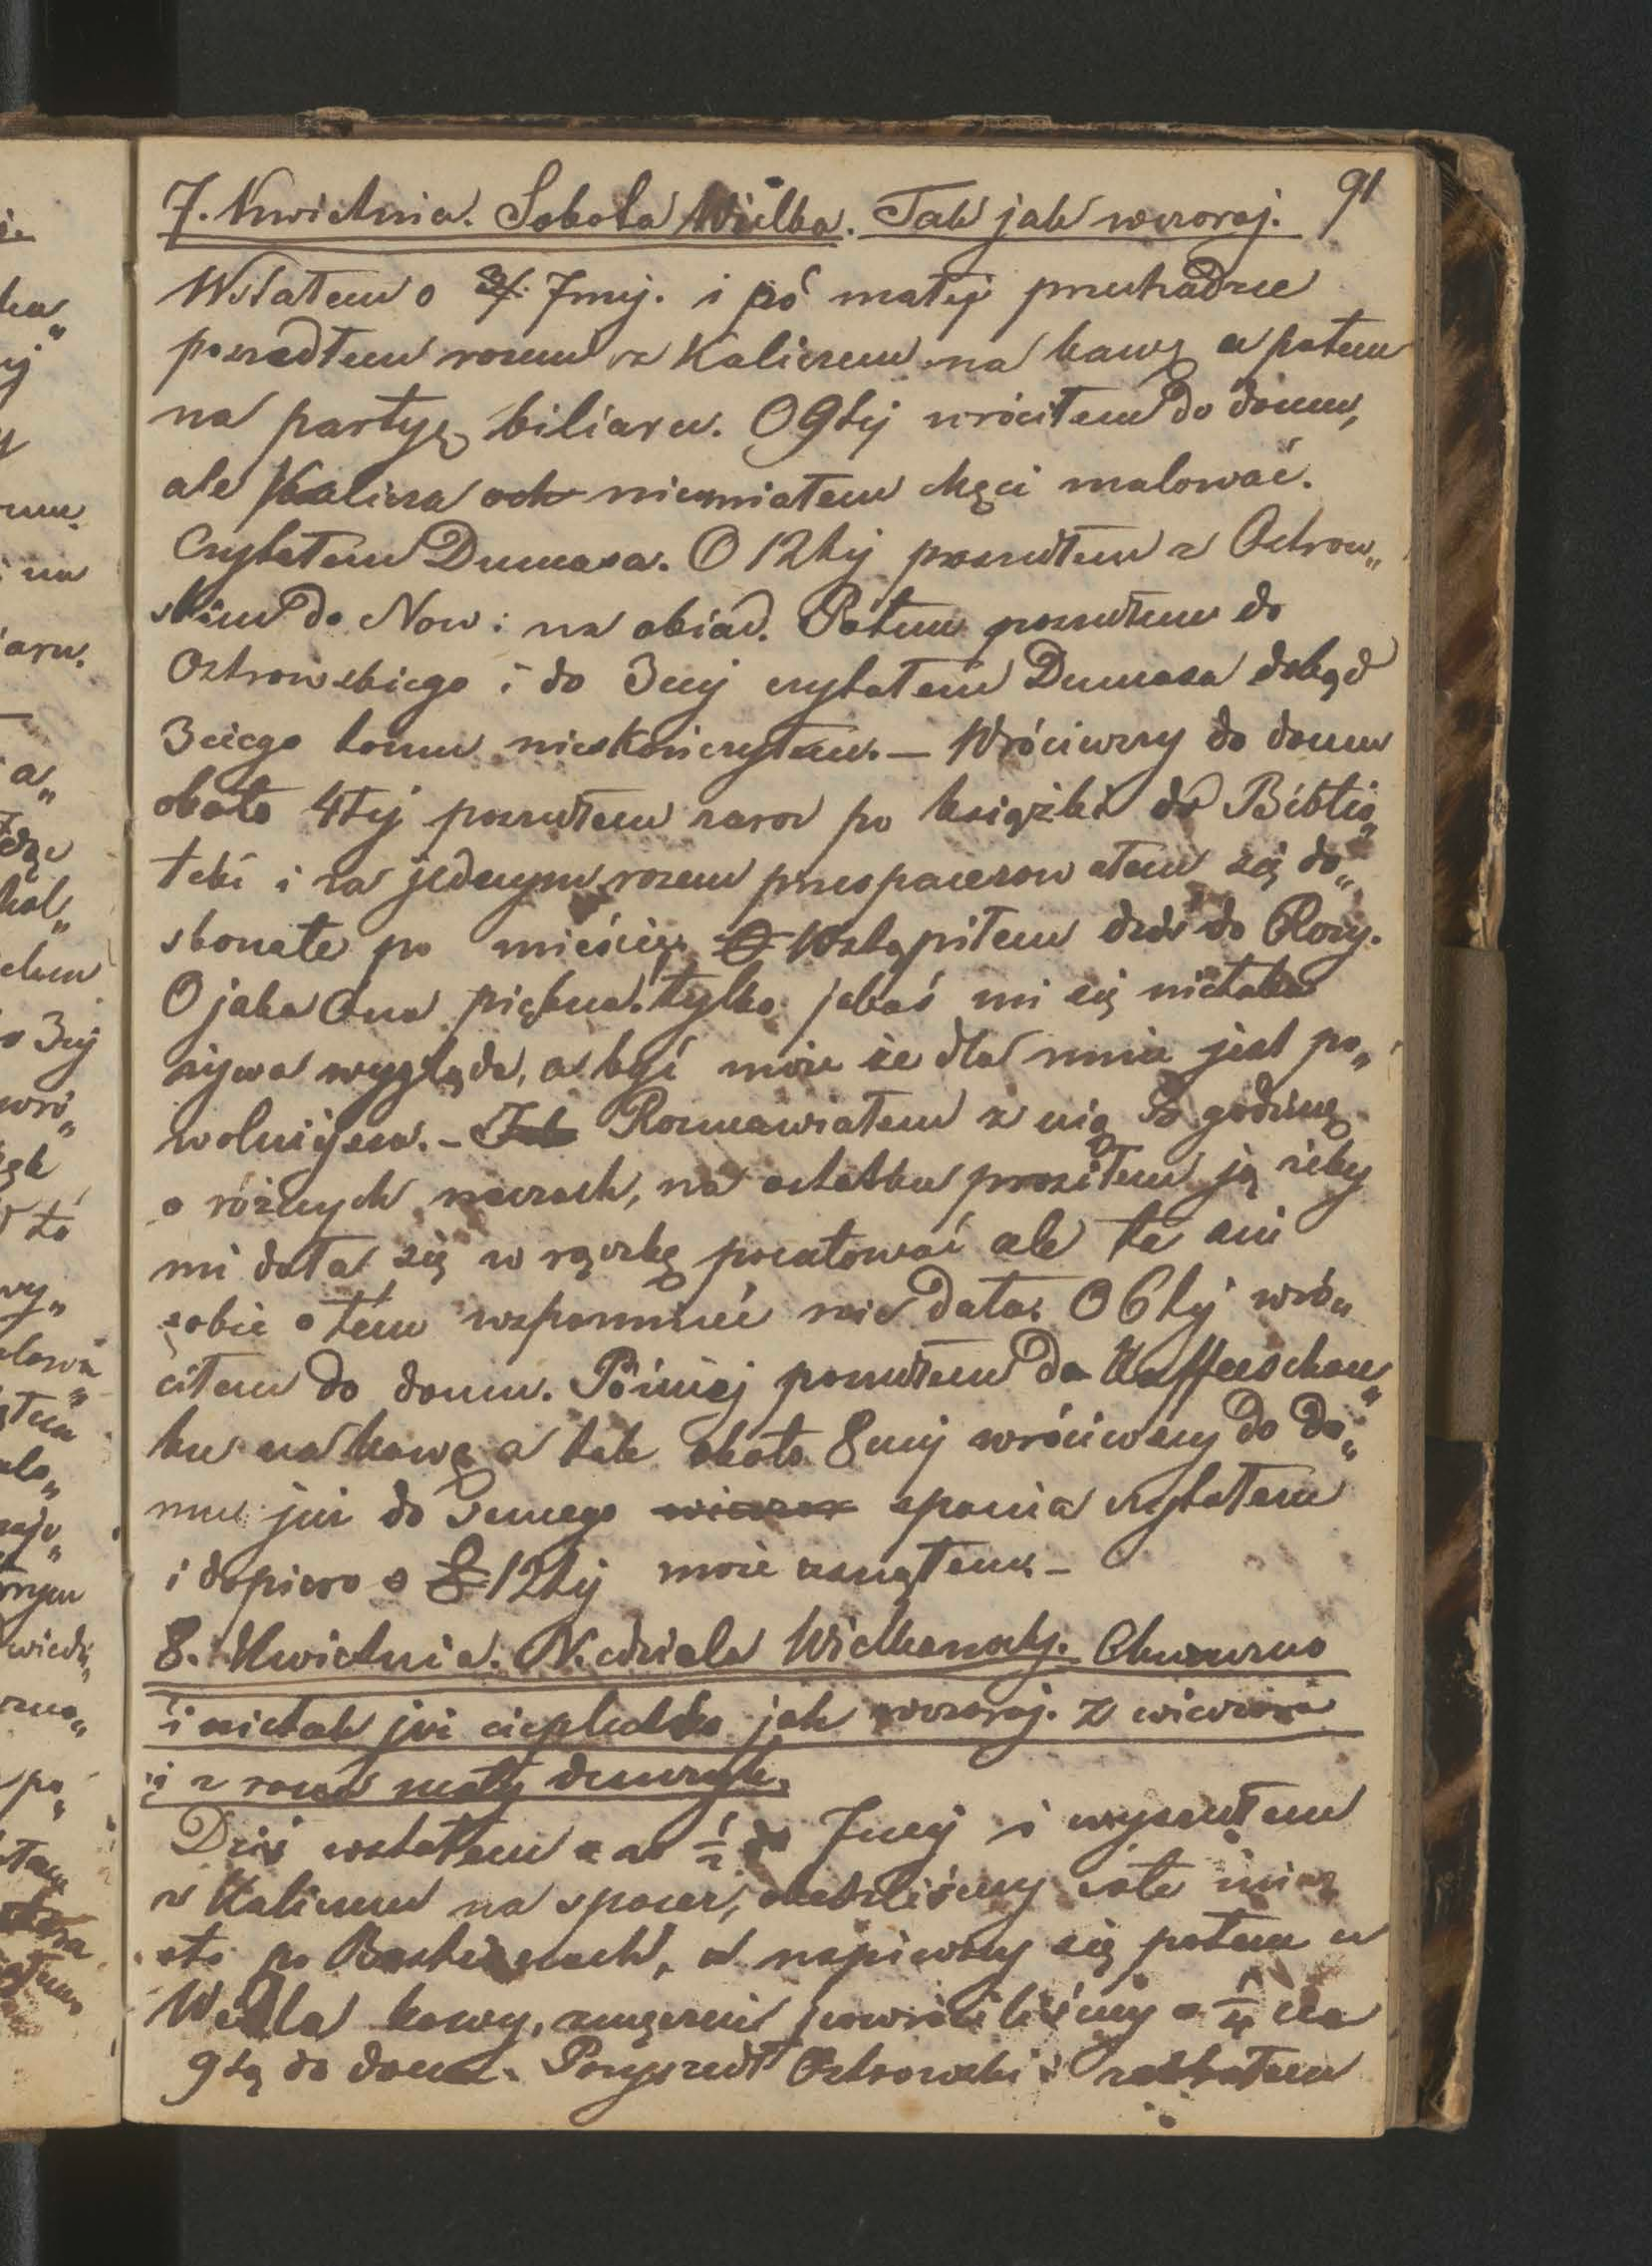 91
7. Kwietnia. Sobota Wielka. Tak jak wczoraj.
Wstałem o 7mej. i po małej przechadzce
poszedłem razem z Kaliczem na kawę a potem
na partyę biliaru. O 9tej wróciłem do domu,
ale Kalicza och niemiałem chęci malować.
Czytałem Dumasa. O 12tej poszedłem z Ostrow„
skim do Now: na obiad. Potem poszedłem do
Ostrowskiego i do 3ciej czytałem Dumasa dokąd
3ciego tomu nieskończyłem. – Wróciwszy do domu
około 4tej poszedłem zaraz po książki do Biblio„
teki i za jednym razem przespacerowałem się do„
skonale po mieście. Wstąpiłem dziś do Rózy.
O jaka Ona piękna. tylko jakoś mi się nietaka
żywa wygląda, a być może że dla mnie jest po„
wolniejsza. – Rozmawiałem z nią godzinę
o różnych rzeczach, na ostatku prosiłem ją żeby
mi dała się w rączkę pocałować ale ta ani
sobie o tém wspomnieć nie dała. O 6tej wró„
ciłem do domu. Pózniej poszedłem do Kaffeeschan„
ku na kawę a tak około 8mej wróciwszy do do„
mu już do samego wieczor spania czytałem
i dopiero o 12tej może zasnąłem. –
8. Kwietnia. Niedziela Wielkanocky. Chmurno
i nietak już cieplutko jak wczoraj. Z wieczora
i z rana mały deszczyk.
Dziś wstałem o 1/2 7mej i wyszedłem
z Kaliczem na spacer, obeszliśmy całe mia„
sto po Bastionach, a napiwszy się potem u
Wedla kawy, zmęczeni powróciliśmy o 1/4 na
9tą do domu. Przyszedł Ostrowski i